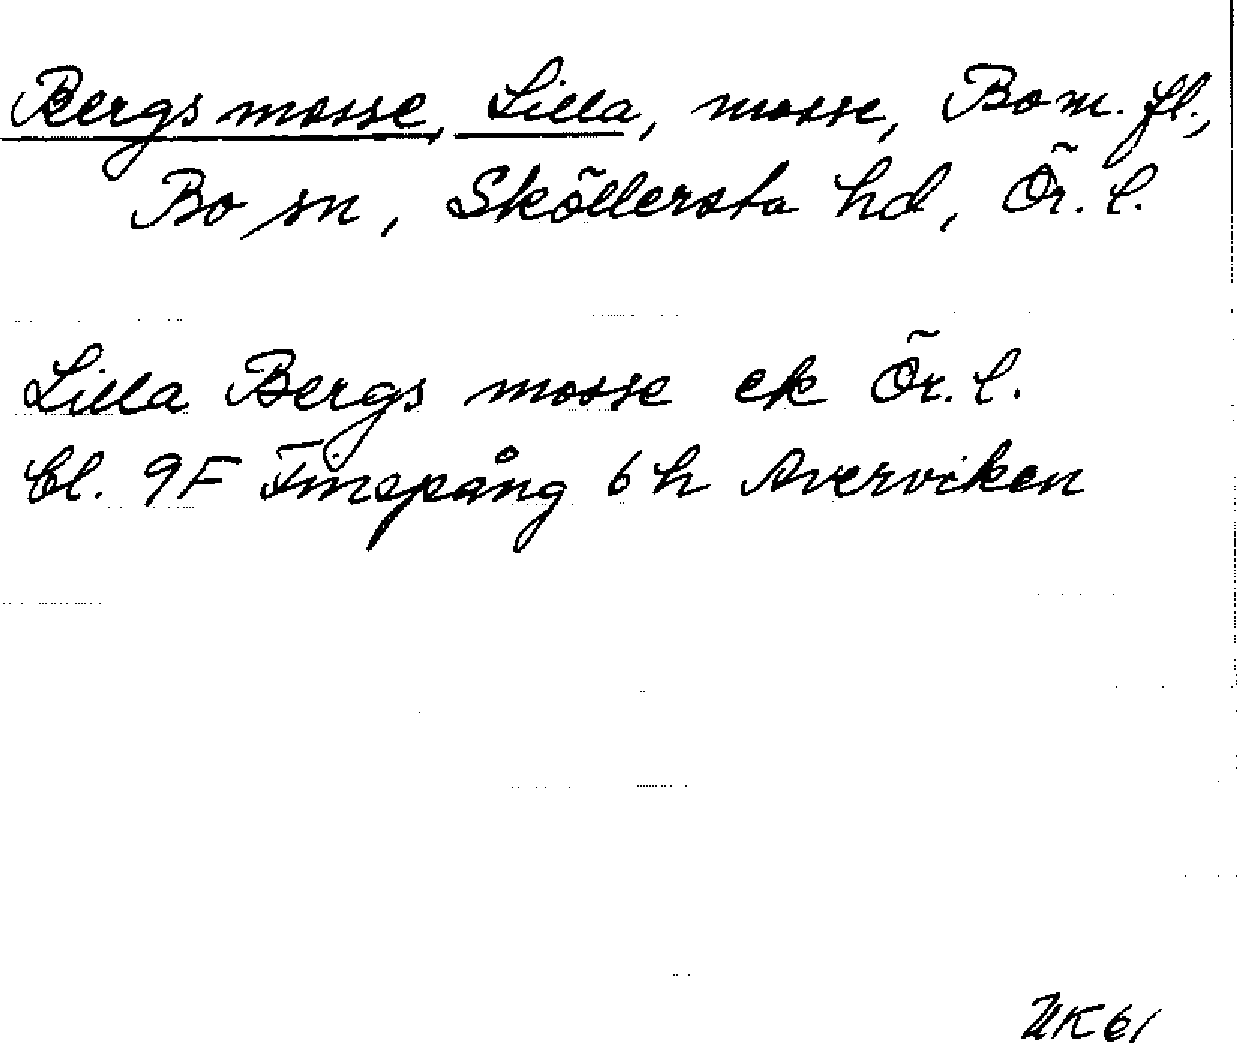 Bergs mosse, Lilla, mosse, Bo m. fl.,
Bo sn, Sköllersta hd, Ör. l.
Lilla Bergs mosse ek Ör. l.
bl. 9F Finspång 6 h Averviken
UK61